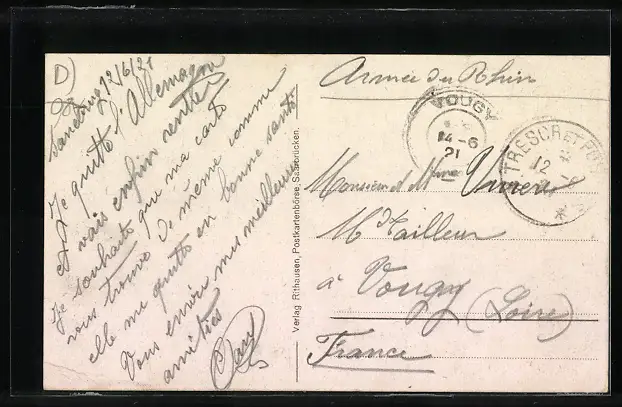 D)
12/6/21
Je quitte l'Allemagne
et vais enfin rentrer
Je souhaite que ma carte
vous trouve de même comme
elle me quitte en bonne santé
Vous envoie mes meilleures
amitiés
Verlag Rithausen, Postkartenbörse, Saarbrücken.
Armée du Rhin
VOUGY
14-6
21
TRESOR ET POSTES
12
Monsieur et Mme
Md Tailleur
à Vougy (Loire)
France